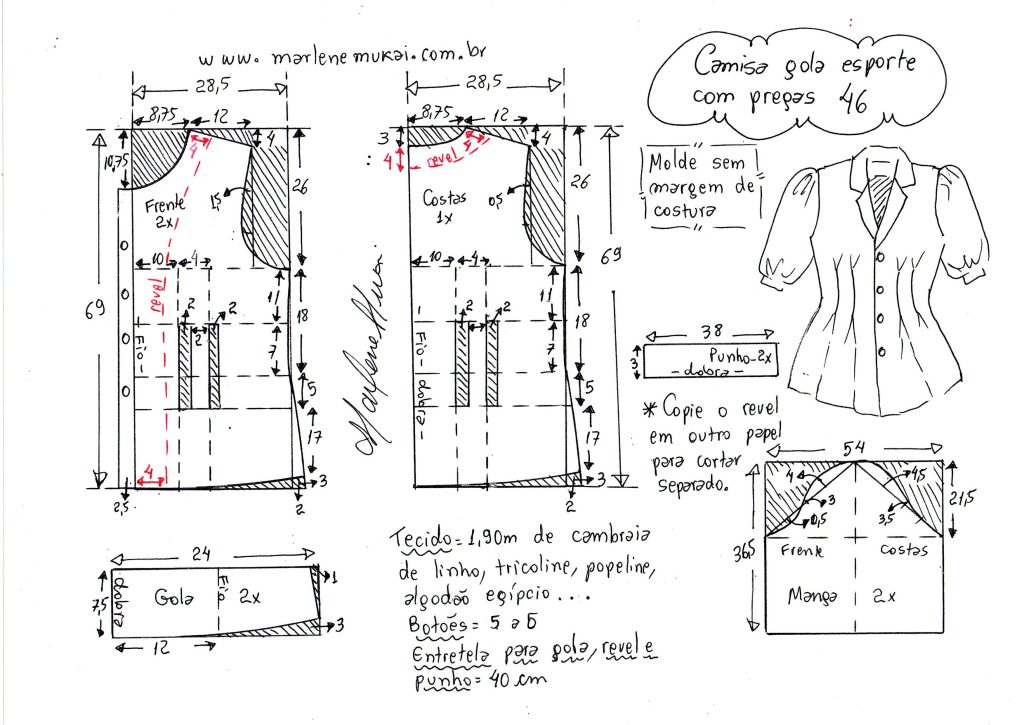 www.marlenemukai.com.br
Camisa gola esporte
com pregas 46
Molde sem
margem de
costura
28,5
8,75
12
4
10,75
4
26
1,5
Frente
2x
10
4
revel
69
2
2
2
11
18
7
5
17
Fio
4
2,5
3
2
28,5
8,75
12
3
4
4
revel
26
Costas
1x
0,5
69
10
4
2
2
11
18
7
5
17
Fio - dobra -
3
2
Marlene Mukai
38
3
Punho-2x
- dobra -
* Copie o revel
em outro papel
para cortar
separado.
54
4
3
0,5
4,5
3,5
21,5
36,5
Frente
Costas
Manga 2x
24
7,5
dobra
Gola
Fio
2x
1
3
12
Tecido= 1,90m de cambraia
de linho, tricoline, popeline,
algodão egípcio...
Botões= 5 a 6
Entretela para gola, revel e
punho= 40 cm